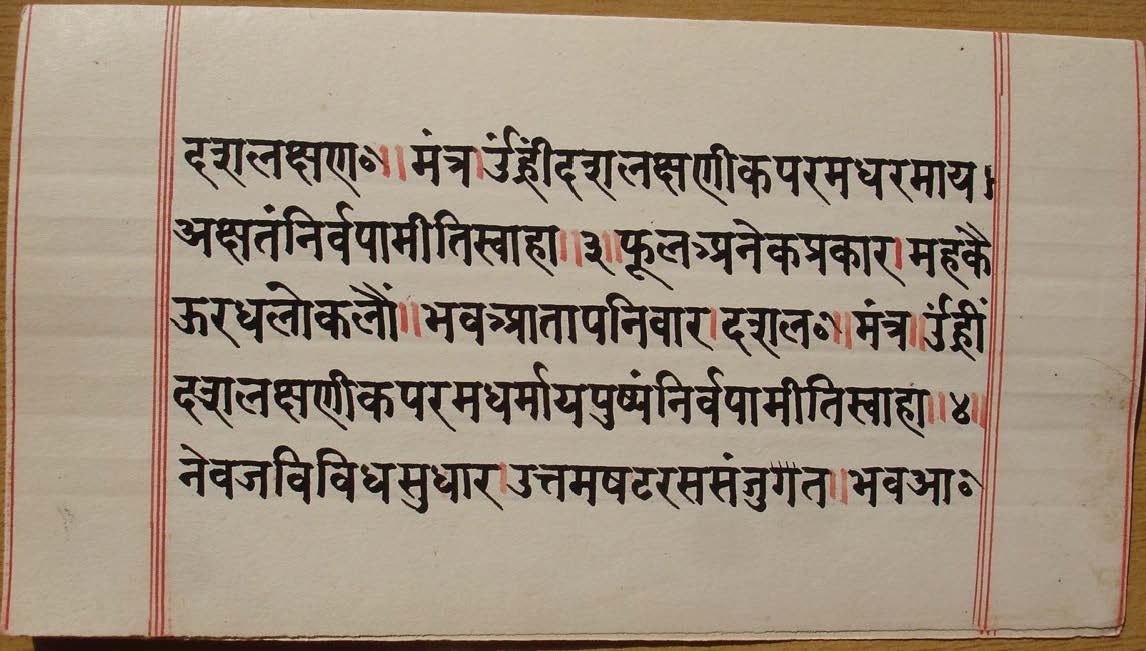 दशलक्षण०॥ मंत्र।उँह्रींदशलक्षणीकपरमधरमाय।
अक्षतंनिर्वपामीतिस्वाहा॥३॥फूलअनेकप्रकार।महकै
ऊरधलोकलौं॥भवआतापनिवार।दशल०॥मंत्र॥उँह्रीं
दशलक्षणीकपरमधर्मायपुष्पंनिर्वपामीतिस्वाहा॥४॥
नेवजविविधसुधार।उत्तमषटरससंजुगत॥भवआ०